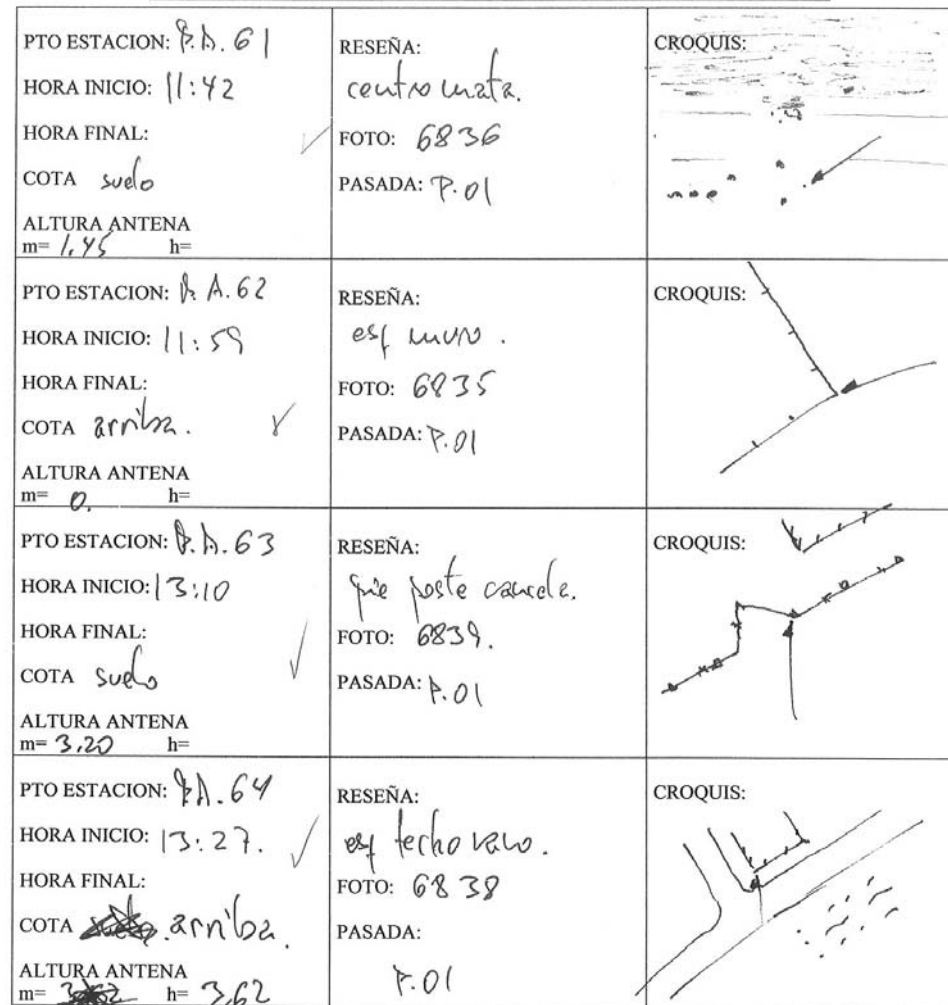 PTO ESTACION: P.A. 61
HORA INICIO: 11:42
HORA FINAL:
COTA suelo
ALTURA ANTENA
m= 1,45 h=
RESEÑA:
centro mata.
FOTO: 6836
PASADA: P.01
CROQUIS:
PTO ESTACION: P.A. 62
HORA INICIO: 11:59
HORA FINAL:
COTA arriba.
ALTURA ANTENA
m= 0. h=
RESEÑA:
esq muro.
FOTO: 6835
PASADA: P.01
CROQUIS:
PTO ESTACION: P.A. 63
HORA INICIO: 13:10
HORA FINAL:
COTA suelo
ALTURA ANTENA
m= 3,20 h=
RESEÑA:
pie poste cancela.
FOTO: 6839.
PASADA: P.01
CROQUIS:
PTO ESTACION: P.A. 64
HORA INICIO: 13:27.
HORA FINAL:
COTA arriba.
ALTURA ANTENA
m= h= 3,62
RESEÑA:
esq techo
FOTO: 6838
PASADA:
P.01
CROQUIS: